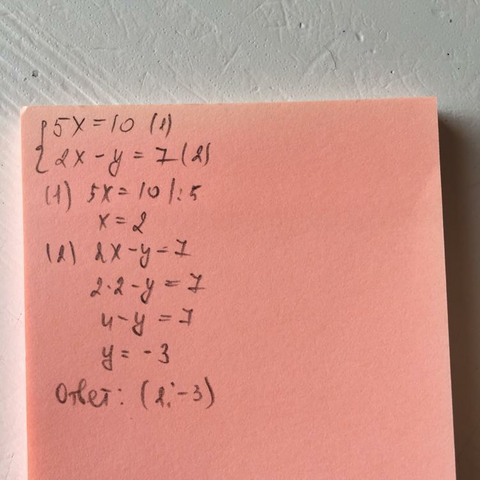 {5x=10 (1)
2x-y=7(2)
(1) 5x=10 |:5
x=2
(2) 2x-y=7
2·2-y=7
4-y=7
y=-3
Ответ: (2;-3)